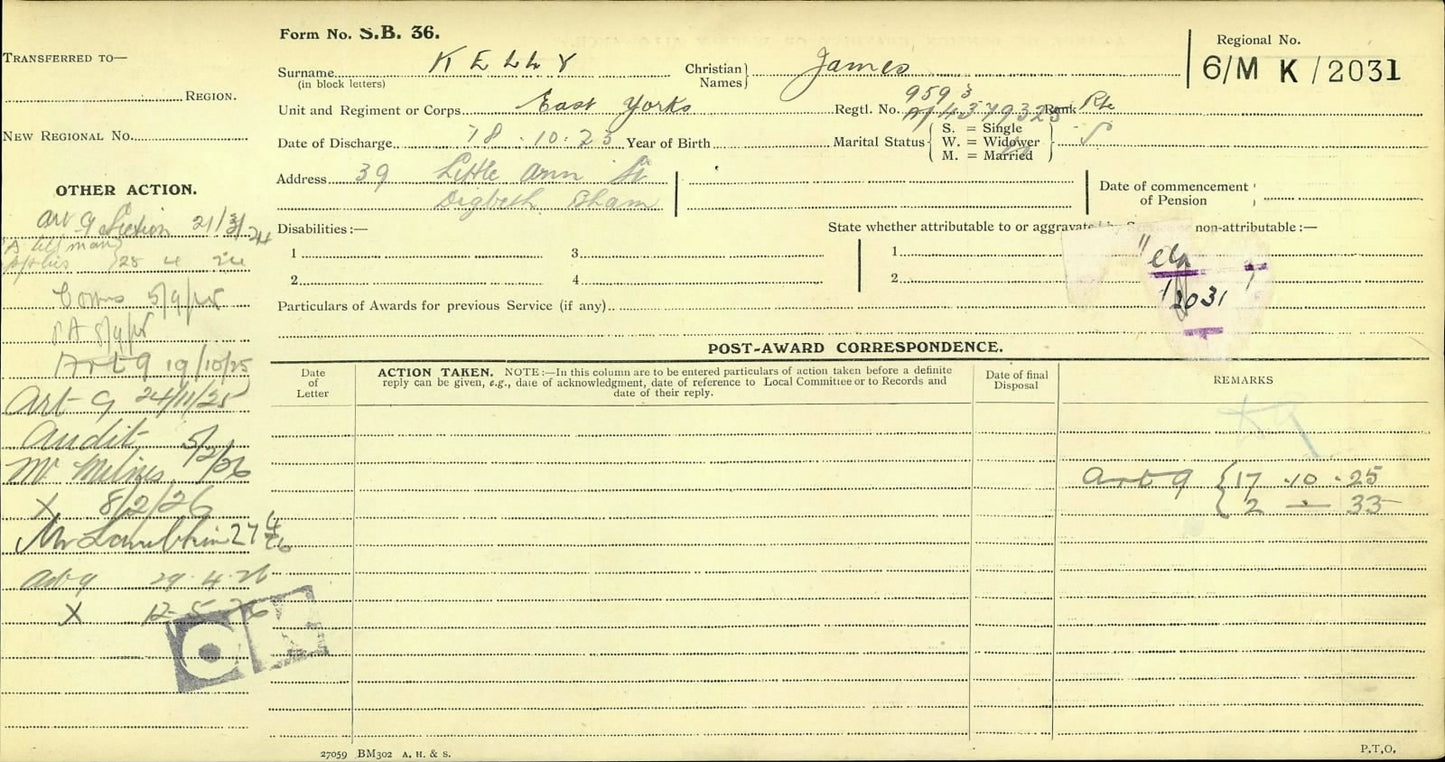 TRANSFERRED TO—
REGION.
NEW REGIONAL No.
OTHER ACTION.
Art 9 Section 21/3/24
28 4 24
5/9/25
PA 8/9/25
Art 9 19/10/25
Art 9 24/11/25
Audit 5/2/26
Mr
X 8/2/26
Mr 27
Art 9 29.4.26
X 12-5-26
Form No. S.B. 36.
Surname KELLY
(in block letters)
Christian Names} James
Regional No.
6/M K / 2031
Unit and Regiment or Corps East Yorks
Regtl. No. 9593 4379325 Rank Pte
Date of Discharge 18.10.23 Year of Birth
Marital Status { S. = Single W. = Widower M. = Married } S
Address 39 Little Ann St
Digbeth Bham
Date of commencement of Pension
Disabilities:—
State whether attributable to or aggravated by non-attributable:—
1 3 1
2 4 2
2031
Particulars of Awards for previous Service (if any)
POST-AWARD CORRESPONDENCE.
Date of Letter
ACTION TAKEN. NOTE:—In this column are to be entered particulars of action taken before a definite
reply can be given, e.g., date of acknowledgment, date of reference to Local Committee or to Records and
date of their reply.
Date of final Disposal
REMARKS
Art 9 { 17 .10 .25
2 — 33
27059 BM302 A. H. & S.
P.T.O.